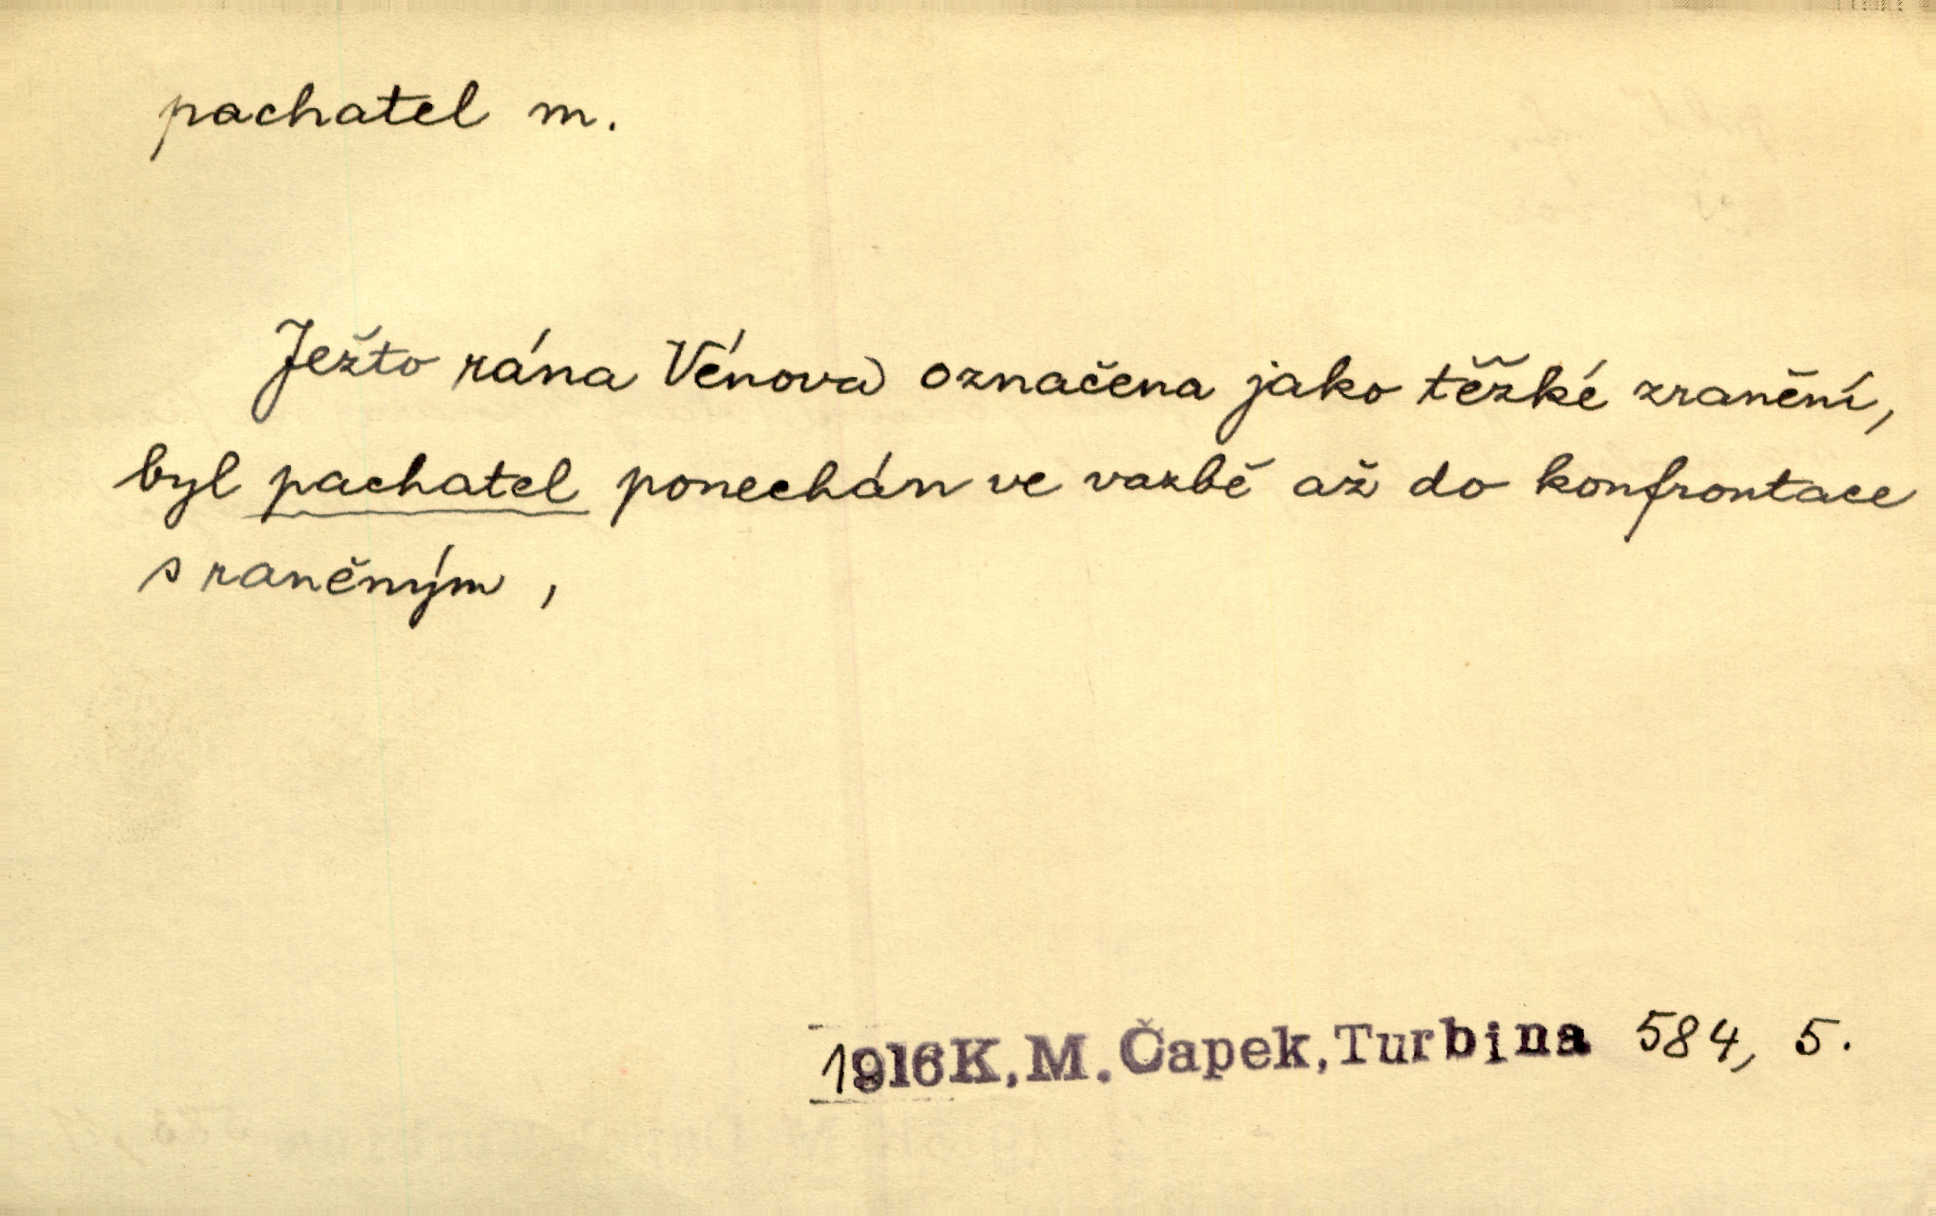 pachatel m.
Ježto rána Vénova označena jako těžké zranění,
byl pachatel ponechán ve vazbě až do konfrontace
s raněným,
1916 K. M. Čapek, Turbina 584, 5.